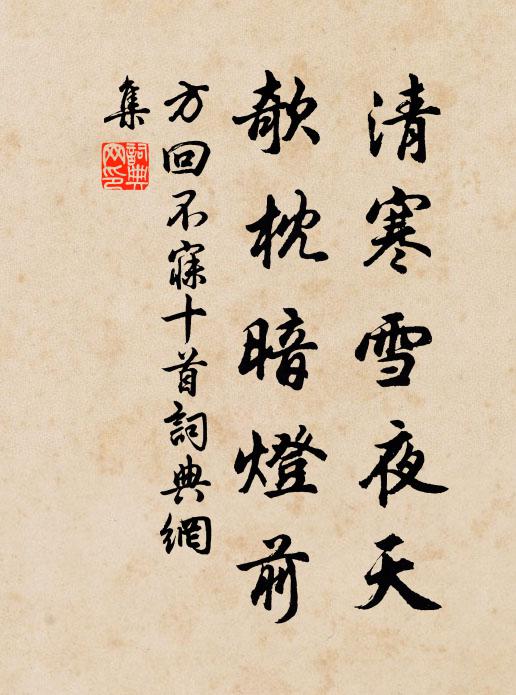 清寒雪夜天
欹枕暗燈前
方回不寐十首詞典網
集
詞典
网印